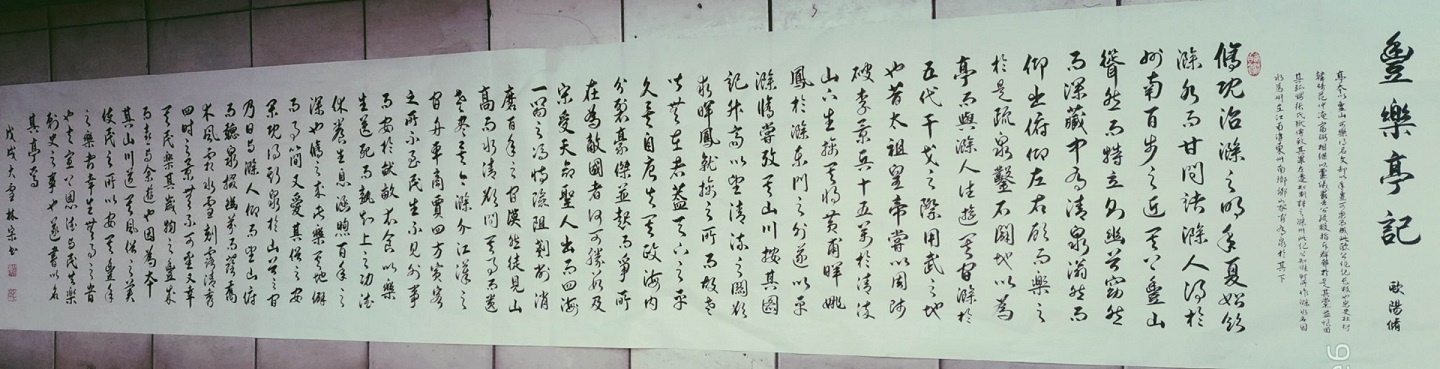 豐樂亭記
歐陽脩
脩既治滁之明年夏始飲
滁水而甘問諸滁人得於
州南百步之近其上豐山
聳然而特立幽谷窈然
而深藏中有清泉滃然而
仰出俯仰左右顧而樂之
於是疏泉鑿石闢地以為
亭而與滁人往遊其間滁於
五代干戈之際用武之地
也昔太祖皇帝嘗以周師
破李景兵十五萬於清流
山下生擒其將皇甫暉姚
鳳於滁東門之外遂以平
滁脩嘗考其山川按其圖
記升高以望清流之關欲
求暉鳳就擒之所而故老
皆無在者蓋天下之平
久矣自唐失其政海內
分裂豪傑並起而爭所
在為敵國者何可勝數及
宋受天命聖人出而四海
一嚮之憑恃險阻剗削消
磨百年之間漠然徒見山
高而水清欲問其事而遺
老盡矣今滁介江淮之
間舟車商賈四方賓客
之所不至民生不見外事
而安於畎畝衣食以樂
生送死而孰知上之功德
休養生息涵煦百年之
深也脩之來此樂其地僻
而事簡又愛其俗之安
閑既得斯泉於山谷之間
乃日與滁人仰而望山俯
而聽泉掇幽芳而蔭喬
木風霜冰雪刻露清秀
四時之景無不可愛又幸
其民樂其歲物之豐成
而喜與余遊也因為本
其山川道其風俗之美
使民知所以安其豐年
之樂者幸生無事之時
也夫宣上恩德與民共樂
刺史之事也遂書以名
其亭焉
戊戌大雪林宗書